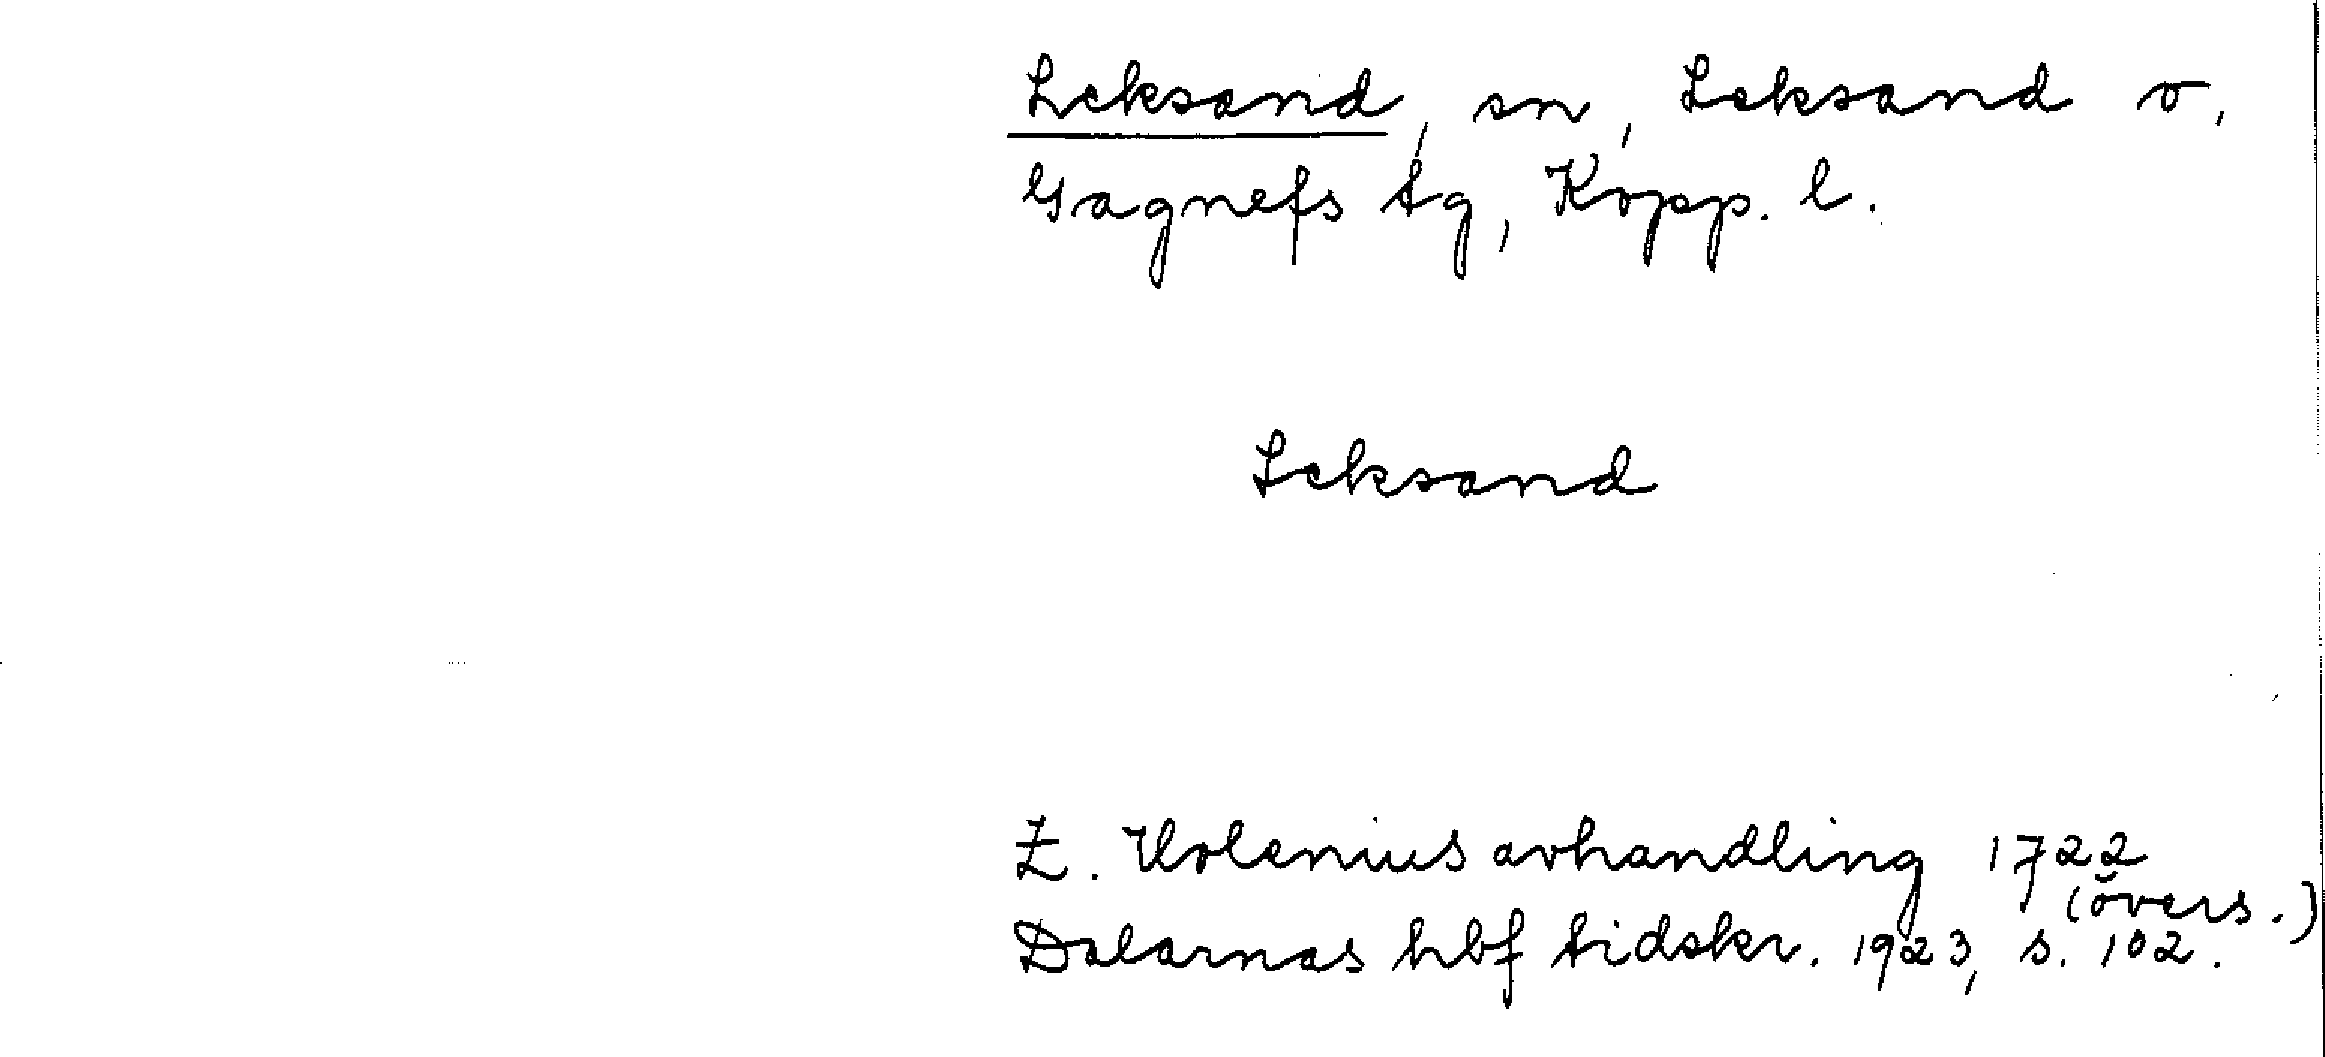 Leksand, sn, Leksand o.
Gagnefs tg, Kopp. l.
Leksand
Z. Holenius avhandling 1722
(övers.)
Dalarnas hbf tidskr. 1923, s. 102.